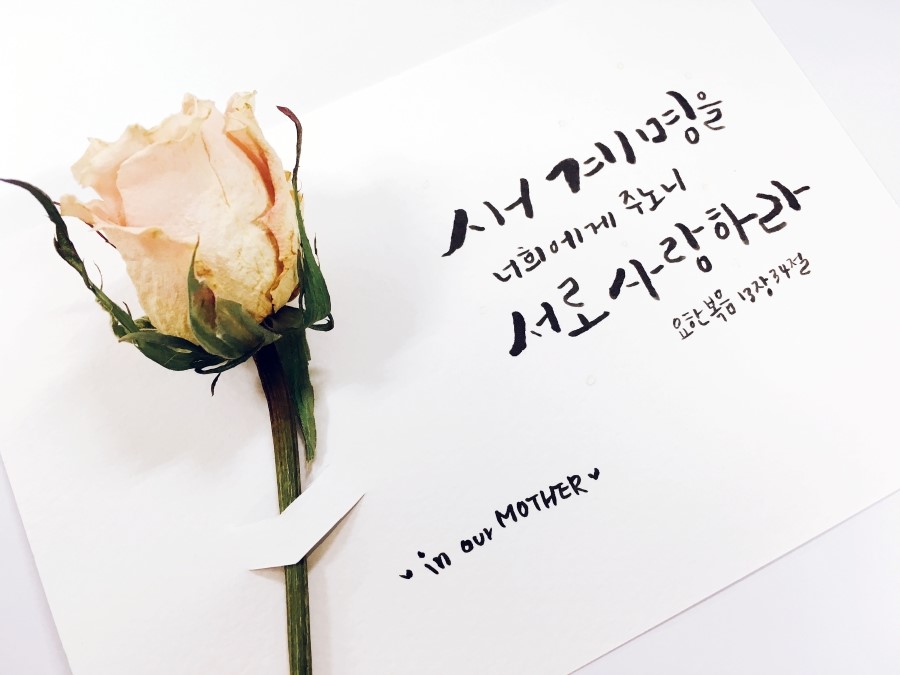 새 계명을
너희에게 주노니
서로 사랑하라
요한복음 13장 34절
in our MOTHER